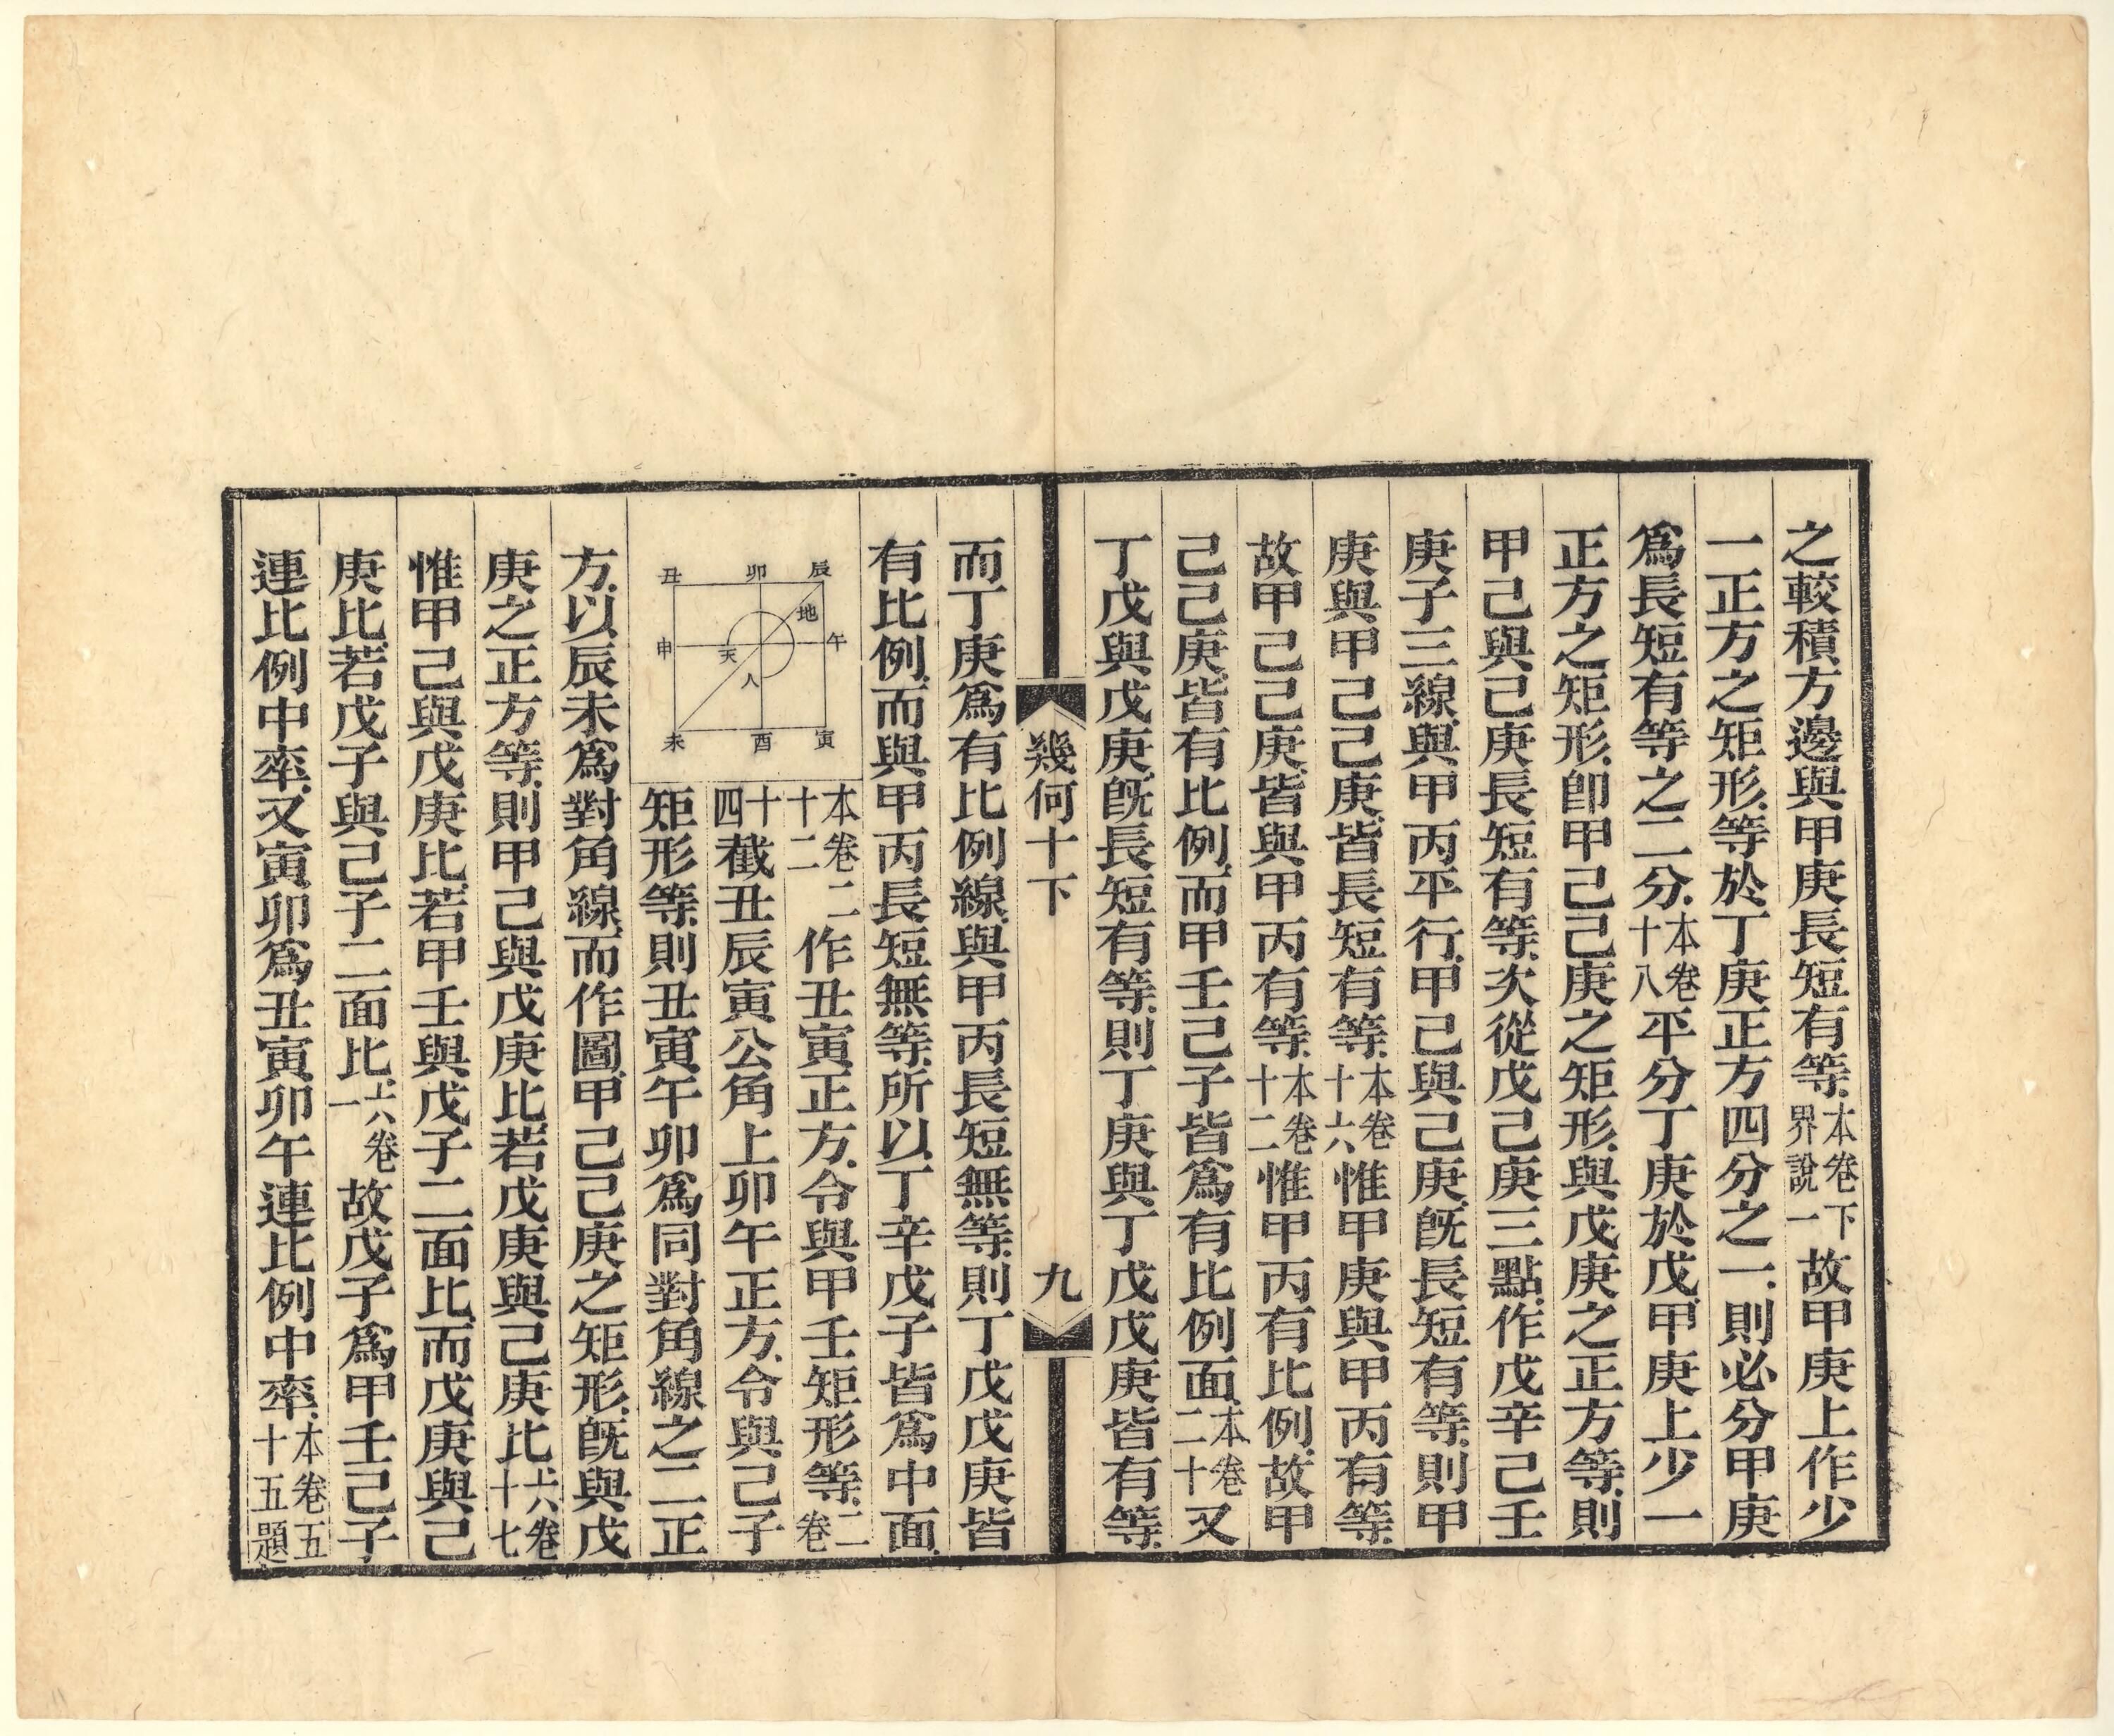 之較積方邊與甲庚長短有等本卷下界說一故甲庚上作少
一正方之矩形等於丁庚正方四分之一則必分甲庚
爲長短有等之二分本卷十八平分丁庚於戊甲庚上少一
正方之矩形卽甲己己庚之矩形與戊庚之正方等則
甲己與己庚長短有等次從戊己庚三點作戊辛己壬
庚子三線與甲丙平行甲己與己庚旣長短有等則甲
庚與甲己己庚皆長短有等本卷十六惟甲庚與甲丙有等
故甲己己庚皆與甲丙有等本卷十二惟甲丙有比例故甲
己己庚皆有比例而甲壬己子皆爲有比例面本卷二十又
丁戊與戊庚旣長短有等則丁庚與丁戊戊庚皆有等
幾何十下
九
而丁庚爲有比例線與甲丙長短無等則丁戊戊庚皆
有比例而與甲丙長短無等所以丁辛戊子皆爲中面
本卷二十二作丑寅正方令與甲壬矩形等二卷
十四截丑辰寅公角上卯午正方令與己子
矩形等則丑寅午卯爲同對角線之二正
辰
卯
丑
地
午
天
申
人
寅
酉
未
方以辰未爲對角線而作圖甲己己庚之矩形旣與戊
庚之正方等則甲己與戊庚比若戊庚與己庚比六卷十七
惟甲己與戊庚比若甲壬與戊子二面比而戊庚與己
庚比若戊子與己子二面比六卷一故戊子爲甲壬己子
連比例中率又寅卯爲丑寅卯午連比例中率本卷五十五題